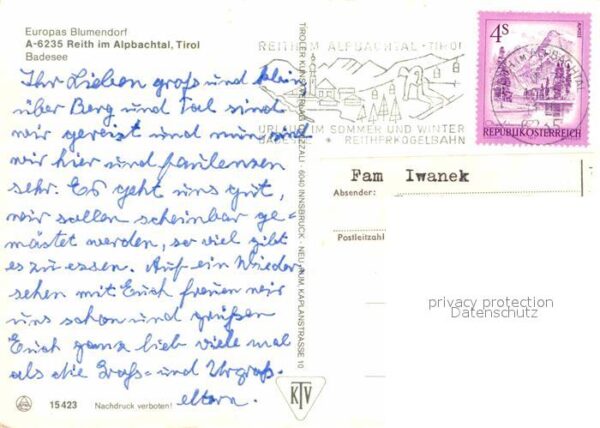 Europas Blumendorf
A-6235 Reith im Alpbachtal, Tirol
Badesee
Ihr Lieben groß und klein
über Berg und Tal sind
wir gereist und nun sind
wir hier und faulenzen
sehr. Es geht uns gut,
wir sollen scheinbar ge-
mästet werden, so viel gibt
es zu essen. Auf ein Wieder-
sehen mit Euch freuen wir
uns schon und grüßen
Euch ganz lieb viele mal
als die Groß- und Urgroß-
eltern.
15423 Nachdruck verboten!
KTV
TIROLER KUNSTVERLAG 6040 INNSBRUCK - NEU-RUM, KAPLANSTRASSE 10
REITH IM ALPBACHTAL - TIROL
URLAUB IM SOMMER UND WINTER
BADESEE + REITHERKOGELBAHN
4S
REPUBLIK ÖSTERREICH
Fam Iwanek
Absender:
Postleitzahl
privacy protection
Datenschutz